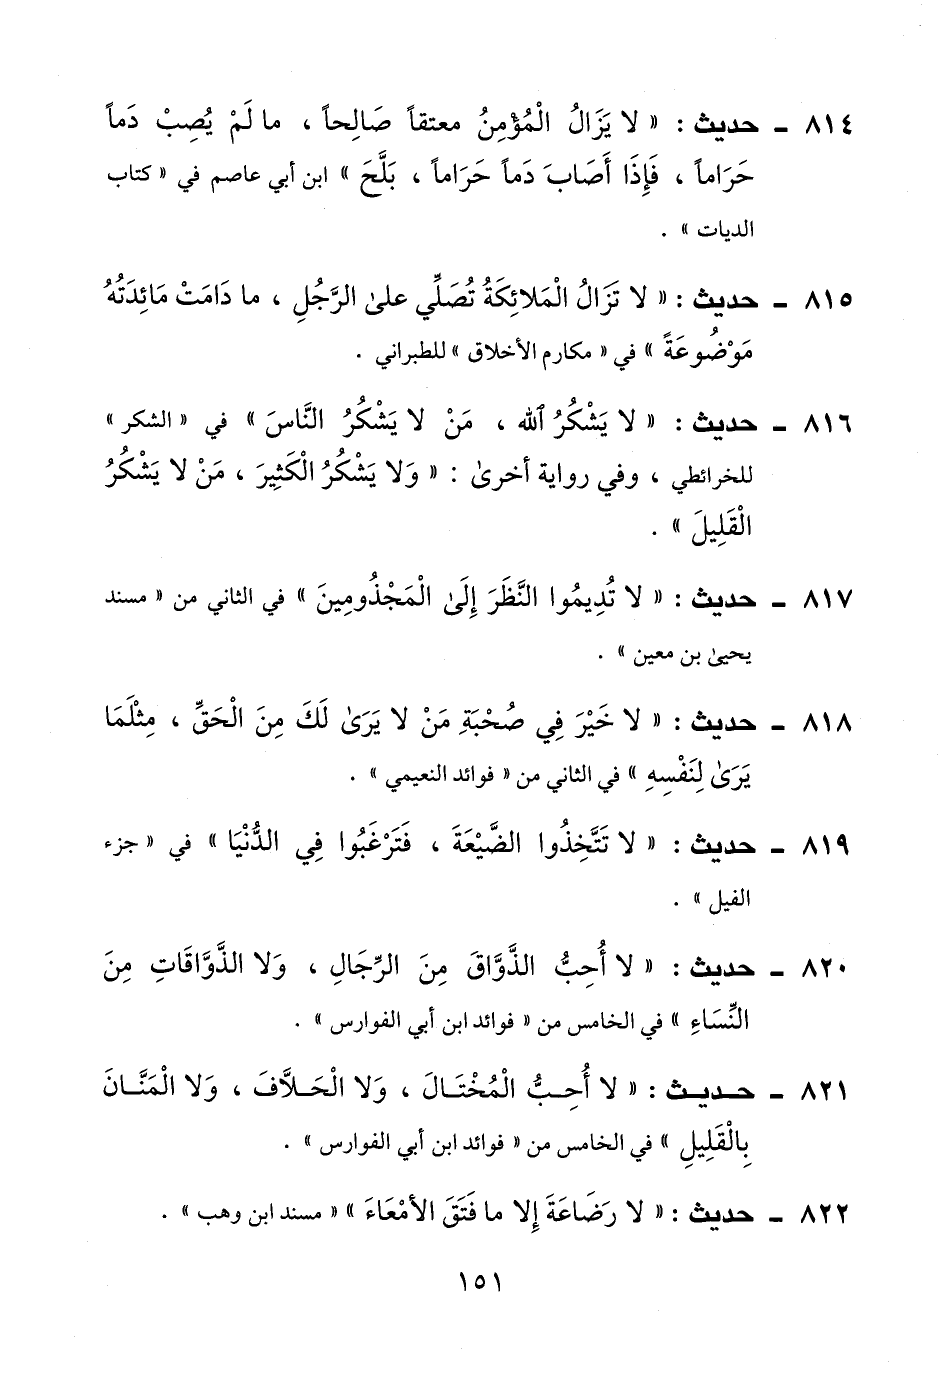 ٨١٤ - حديث : « لا يَزَالُ الْمُؤْمِنُ معتقاً صَالِحاً ، ما لَمْ يُصِبْ دَماً
حَرَاماً ، فَإِذَا أَصَابَ دَماً حَرَاماً ، بَلَّحَ » ابن أبي عاصم في « كتاب
الديات » .
٨١٥ - حديث : « لا تَزَالُ الْمَلائِكَةُ تُصَلِّي علىٰ الرَّجُلِ ، ما دَامَتْ مَائِدَتُهُ
مَوْضُوعَةً » في « مكارم الأخلاق » للطبراني .
٨١٦ - حديث : « لا يَشْكُرُ ٱلله ، مَنْ لا يَشْكُرُ النَّاسَ » في « الشكر »
للخرائطي ، وفي رواية أخرىٰ : « وَلا يَشْكُرُ الْكَثِيرَ ، مَنْ لا يَشْكُرُ
الْقَلِيلَ » .
٨١٧ - حديث : « لا تُدِيمُوا النَّظَرَ إِلَىٰ الْمَجْذُومِينَ » في الثاني من « مسند
يحيىٰ بن معين » .
٨١٨ - حديث : « لا خَيْرَ فِي صُحْبَةِ مَنْ لا يَرَىٰ لَكَ مِنَ الْحَقِّ ، مِثْلَمَا
يَرَىٰ لِنَفْسِهِ » في الثاني من « فوائد النعيمي » .
٨١٩ - حديث : « لا تَتَّخِذُوا الضَّيْعَةَ ، فَتَرْغَبُوا فِي الدُّنْيَا » في « جزء
الفيل » .
٨٢٠ - حديث : « لا أُحِبُّ الذَّوَّاقَ مِنَ الرِّجَالِ ، وَلا الذَّوَّاقَاتِ مِنَ
النِّسَاءِ » في الخامس من « فوائد ابن أبي الفوارس » .
٨٢١ - حـديـث : « لا أُحِـبُّ الْمُخْتَـالَ ، وَلا الْحَـلاَّفَ ، وَلا الْمَنَّـانَ
بِالْقَلِيلِ » في الخامس من « فوائد ابن أبي الفوارس » .
٨٢٢ - حديث : « لا رَضَاعَةَ إِلا ما فَتَقَ الأمْعَاءَ » « مسند ابن وهب » .
١٥١